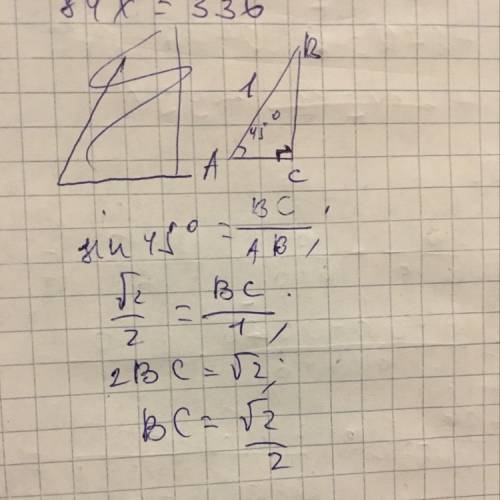 84x = 336
B
1
45°
A
C
sin 45° = BC/AB,
√2/2 = BC/1,
2BC = √2;
BC = √2/2